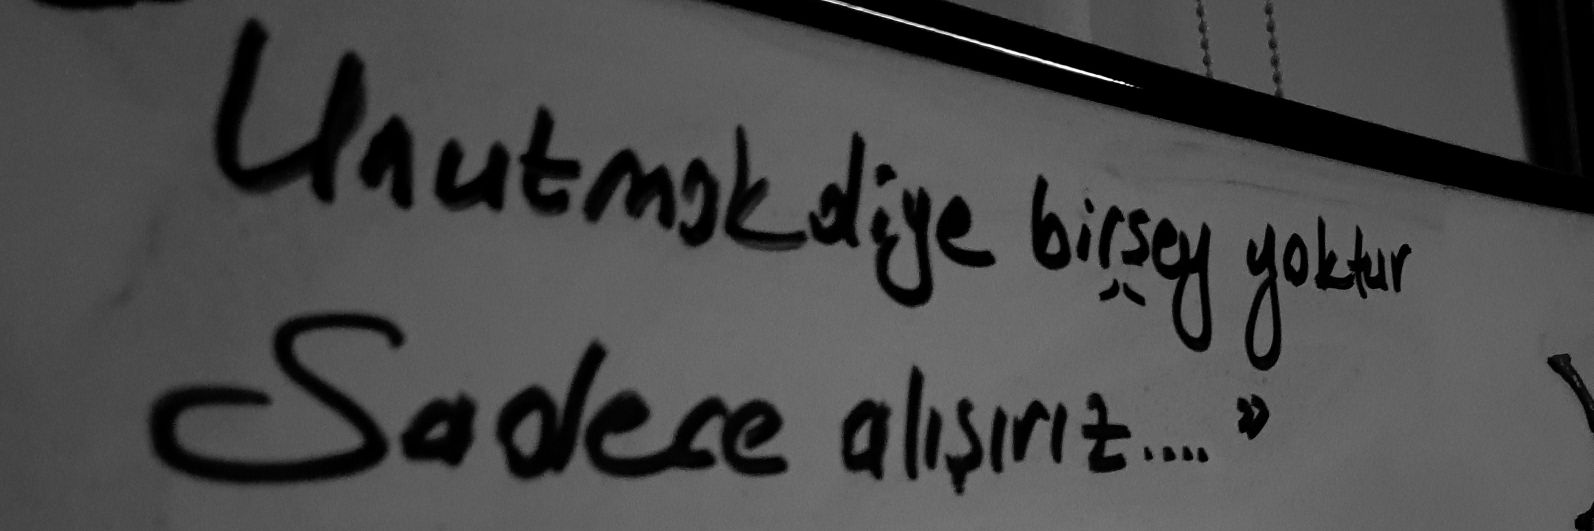 Unutmak diye birşey yoktur
Sadece alışırız.... "